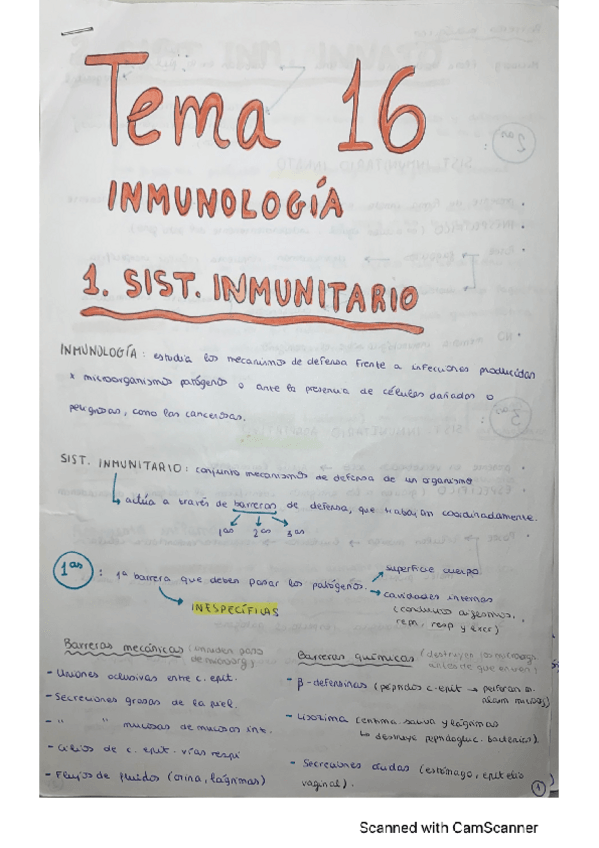 Tema 16
INMUNOLOGÍA
1. SIST. INMUNITARIO
INMUNOLOGÍA: estudia los mecanismos de defensa frente a infecciones producidas
x microorganismos patógenos o ante la presencia de células dañadas o
peligrosas, como las cancerosas.
SIST. INMUNITARIO: conjunto mecanismos de defensa de un organismo
actúa a través de barreras de defensa, que trabajan coordinadamente.
1as 2as 3as
1as : 1ª barrera que deben pasar los patógenos.
superficie cuerpo
cavidades internas
(conductos digestivos,
rep, resp y excr)
INESPECÍFICAS
Barreras mecánicas (impiden paso
de microorg)
- Uniones oclusivas entre c. epit.
- Secreciones grasas de la piel.
- " " mucosas de mucosas int.
- Cilios de c. epit. vías resp
- Flujos de fluidos (orina, lágrimas)
Barreras químicas (destruyen los microorg
antes de que entren)
- β-defensinas (péptidos c. epit → perforan m.
microorg)
- Lisozima (enzima saliva y lágrimas
↳ destruye peptidogluc. bacterias).
- Secreciones ácidas (estómago, epitelio
vaginal).
1
Scanned with CamScanner